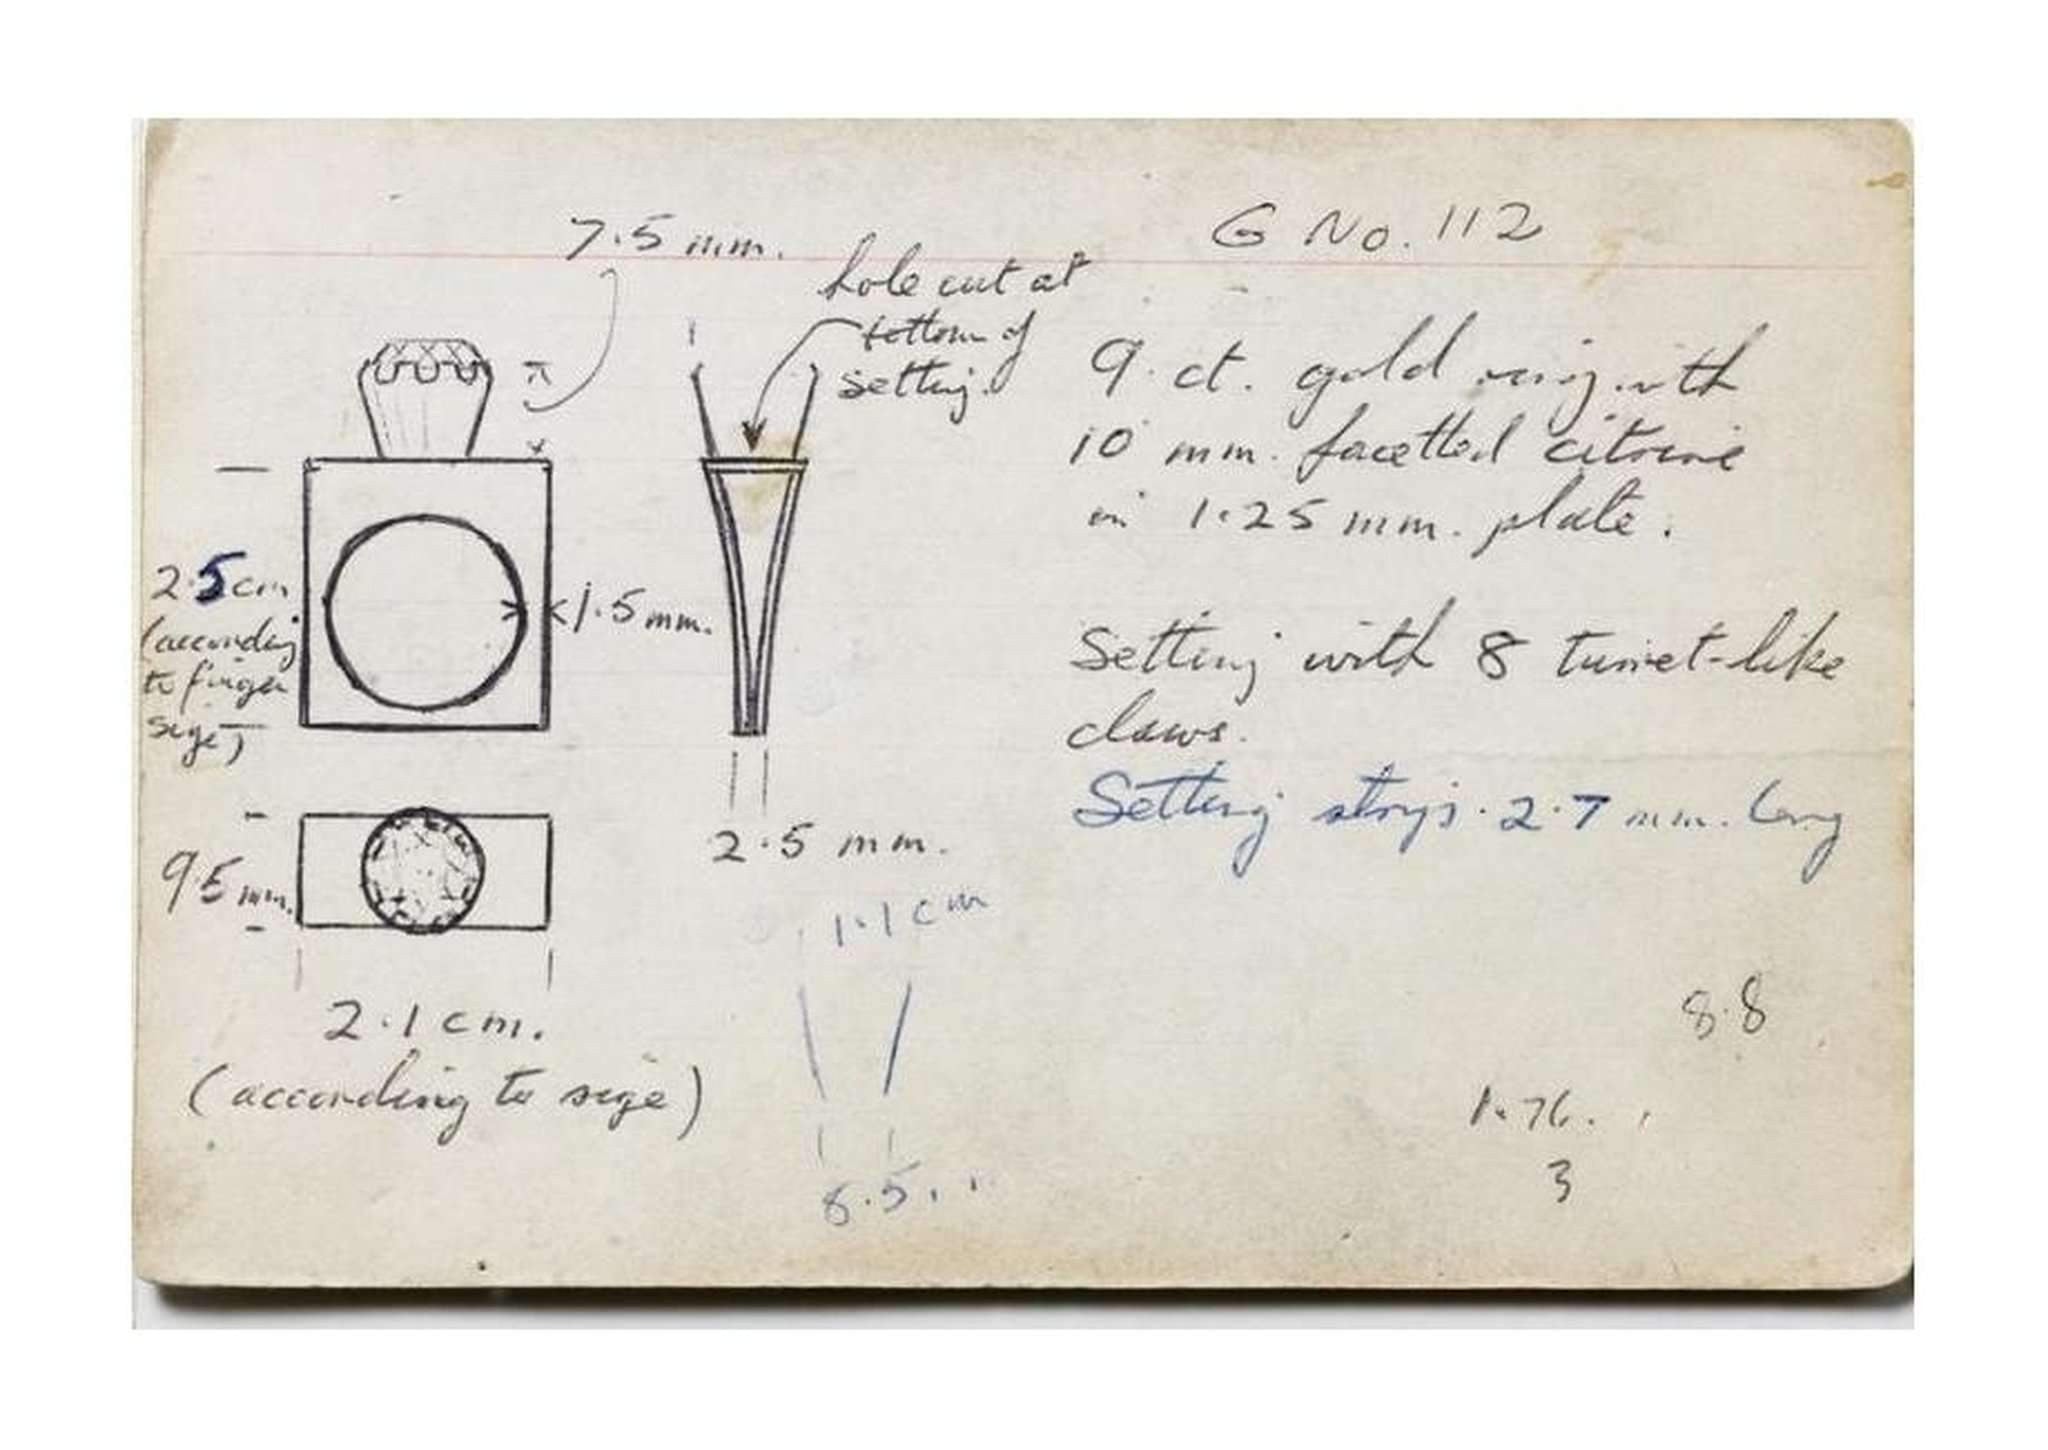 G No. 112
7.5 mm.
hole cut at
bottom of
setting.
9 ct. gold ring with
10 mm. facetted citrine
in 1.25 mm. plate.
2.5 cm
(according
to finger
size)
1.5 mm.
Setting with 8 turret-like
claws.
Setting 2.7 mm. long
9.5 mm.
2.5 mm.
1.1 cm
2.1 cm.
(according to size)
8.5
8.8
1.76.
3